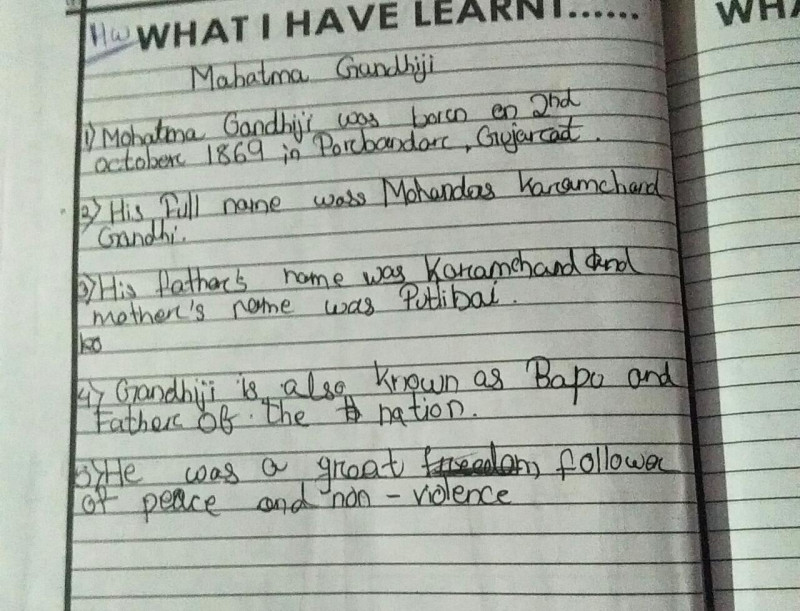 Hw WHAT I HAVE LEARNT......
WHA
Mahatma Gandhiji
1) Mohatma Gandhiji was born on 2nd
october 1869 in Porbandar, Gujarat.
2) His Full name wass Mohandas Karamchand
Gandhi.
3) His Father's name was Karamchand and
mother's name was Putlibai.
ko
4) Gandhiji is also known as Bapu and
Father of the nation.
5) He was a great freedom follower
of peace and non-violence